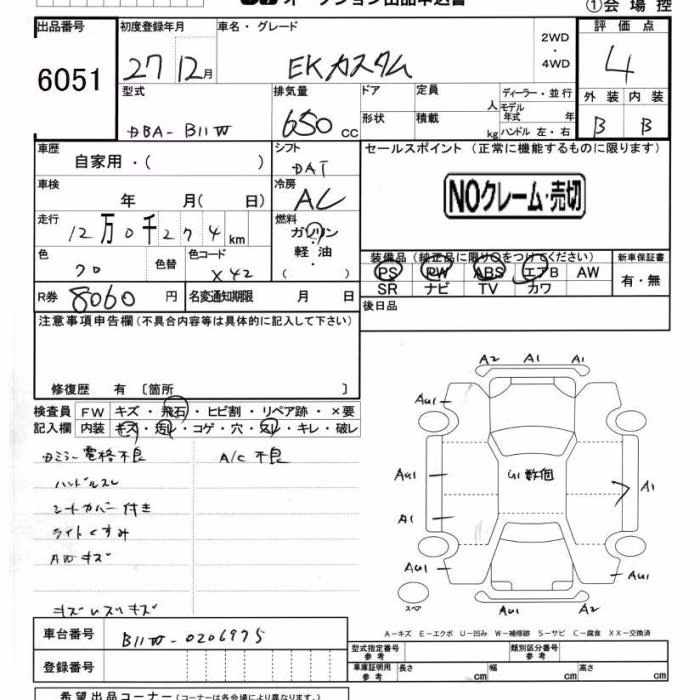 オークション出品申込書
①会場控
出品番号
6051
初度登録年月
27 12月
車名・グレード
EKカスタム
2WD・4WD
評価点
4
外装 内装
B B
型式
DBA-B11W
排気量
650 cc
ドア
形状
定員
人
積載
kg
ディーラー・並行
モデル年式 年
ハンドル 左・右
車歴
自家用・( )
シフト
DAT
セールスポイント (正常に機能するものに限ります)
NOクレーム・売切
車検
年 月( 日)
冷房
AC
走行
12万0千274km
燃料
ガソリン・軽油・( )
色
クロ
色替
色コード
X42
装備品 (純正品に限り○をつけてください)
PS PW ABS エアB AW
SR ナビ TV カワ
新車保証書
有・無
R券 8060円
名変通知期限 月 日
後日品
注意事項申告欄 (不具合内容等は具体的に記入して下さい)
修復歴 有 〔箇所 〕
検査員記入欄
FW キズ・飛石・ヒビ割・リペア跡・×要
内装 キズ・汚レ・コゲ・穴・スレ・キレ・破レ
カミラー電格不良
A/C不良
ハンドルスレ
シートカバー付き
ライトくすみ
AWキズ
キズレズリキズ
A2 A1 A1
AU1
AU1
U1数個
A1
A1
AU1
AU1
スペア
AU1 A2
A-キズ E-エクボ U-凹み W-補修跡 S-サビ C-腐食 XX-交換済
車台番号
B11W-0206975
登録番号
型式指定番号 参考
類別区分番号 参考
車庫証明用 参考
長さ cm 幅 cm 高さ cm
希望出品コーナー (コーナーは各会場により異なります。)